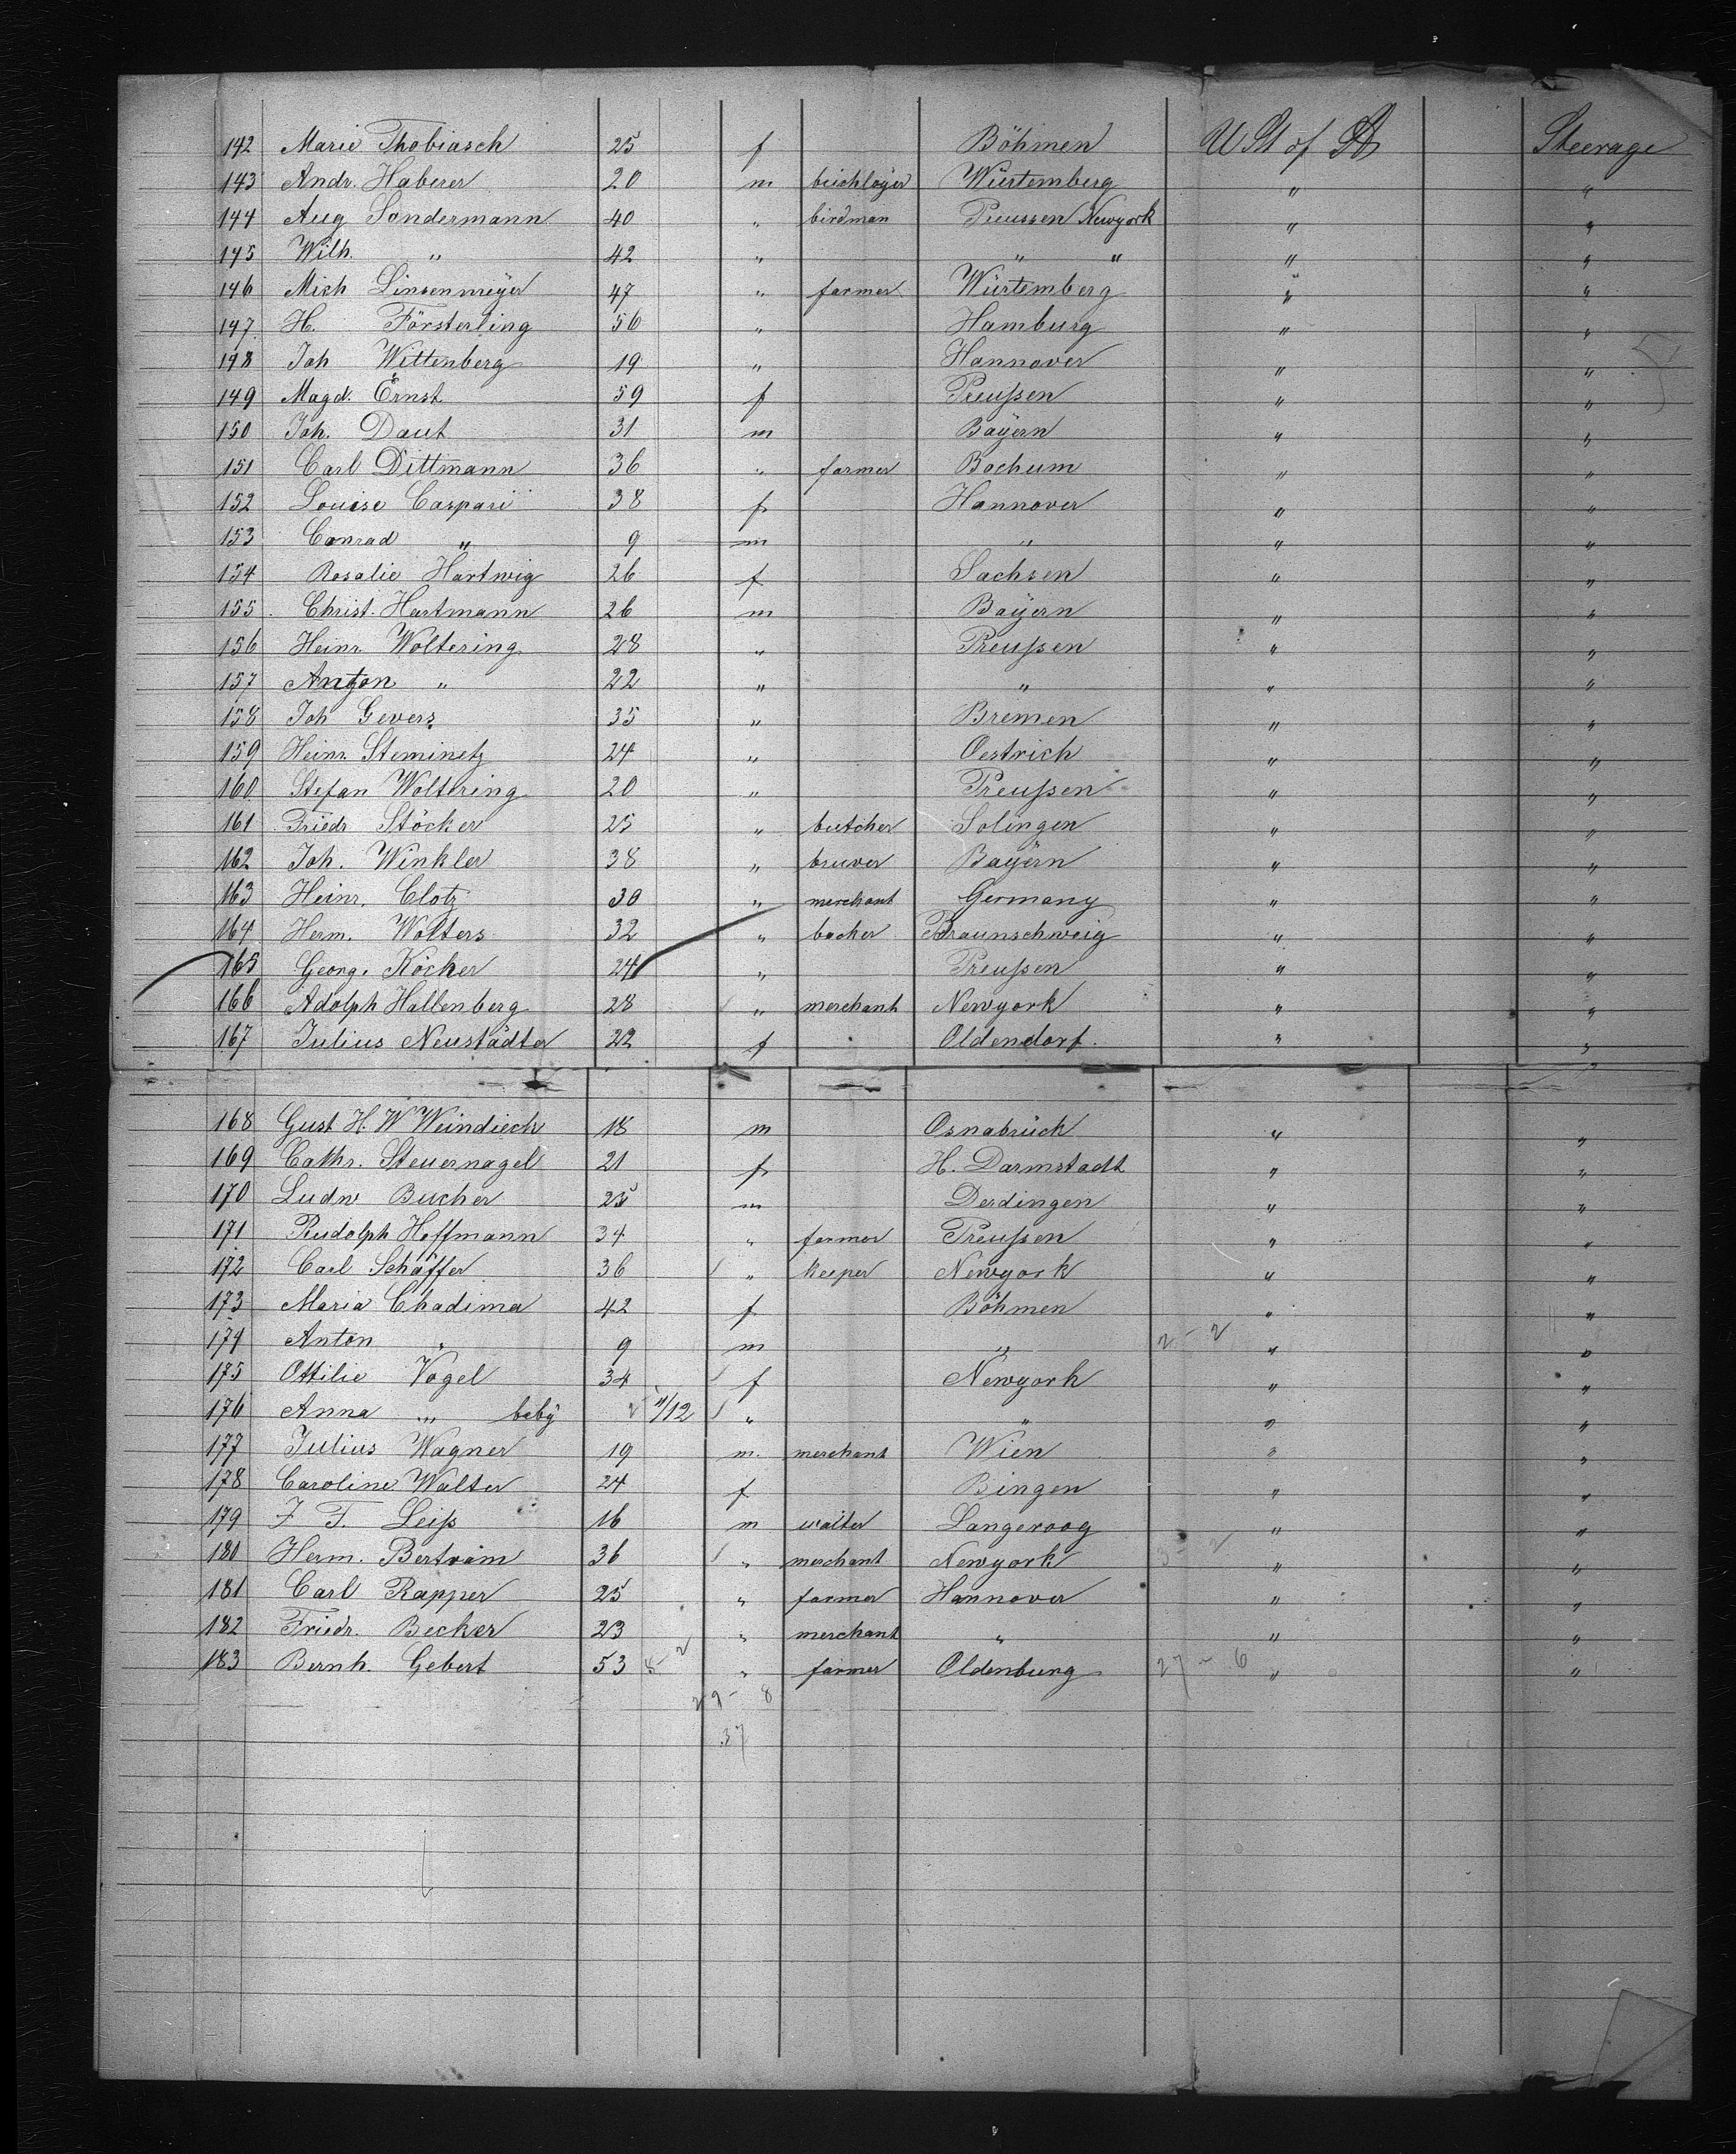 142 Marie Thobiasch 25 f Böhmen U St of A Steerage
143 Andr. Haberer 20 m brichloyer Würtemberg " "
144 Aug Sondermann 40 " birdman Preussen Newyork " "
145 Wilh. " 42 " " " " "
146 Mich Linsenmeÿer 47 " farmer Würtemberg " "
147 H. Försterling 56 " Hamburg " "
148 Joh Wittenberg 19 " Hannover " "
149 Magd. Ernst 59 f Preußen " "
150 Joh. Daut 31 m Baÿern " "
151 Carl Dittmann 36 " farmer Bochum " "
152 Louise Caspari 38 f Hannover " "
153 Conrad " 9 m " " "
154 Rosalie Hartwig 26 f Sachsen " "
155 Christ. Hartmann 26 m Baÿern " "
156 Heinr. Woltering 28 " Preußen " "
157 Anton " 22 " " " "
158 Joh Gevers 35 " Bremen " "
159 Heinr. Steminetz 24 " Oestrich " "
160 Stefan Woltering 20 " Preußen " "
161 Friedr Stöcker 25 " butcher Solingen " "
162 Joh. Winkler 38 " bruver Baÿern " "
163 Heinr. Clotz 30 " merchant Germany " "
164 Herm. Wolters 32 " backer Braunschweig " "
165 Georg. Köcher 24 " Preußen " "
166 Adolph Hallenberg 28 " merchant Newyork " "
167 Julius Neustädter 22 f Oldendorf. " "
168 Gust H. W Weindiech 18 m Osnabrück " "
169 Cathr. Steuernagel 21 f H. Darmstadt " "
170 Ludw Bucher 25 m Derdingen " "
171 Rudolph Hoffmann 34 " farmer Preußen " "
172 Carl Schäffer 36 " keeper Newyork " "
173 Maria Chadima 42 f Böhmen " "
174 Anton " 9 m " 2 - 2 " "
175 Ottilie Vogel 34 f Newyork " "
176 Anna " bebÿ 11/12 " " " "
177 Julius Wagner 19 m. merchant Wien " "
178 Caroline Walter 24 f Bingen " "
179 F. Leiß 16 m waiter Langeroog " "
180 Herm. Bertram 36 " merchant Newyork 3 - 2 " "
181 Carl Rapper 25 " farmer Hannover " "
182 Friedr. Becker 23 " merchant " " "
183 Bernh. Gebert 53 " farmer Oldenburg 27 - 6 " "
29 - 8
37